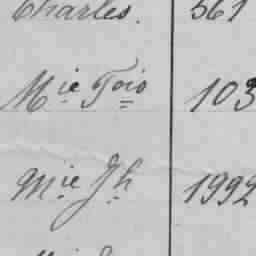 Charles. 561
Mie Fois 103
Mie Jh 1992